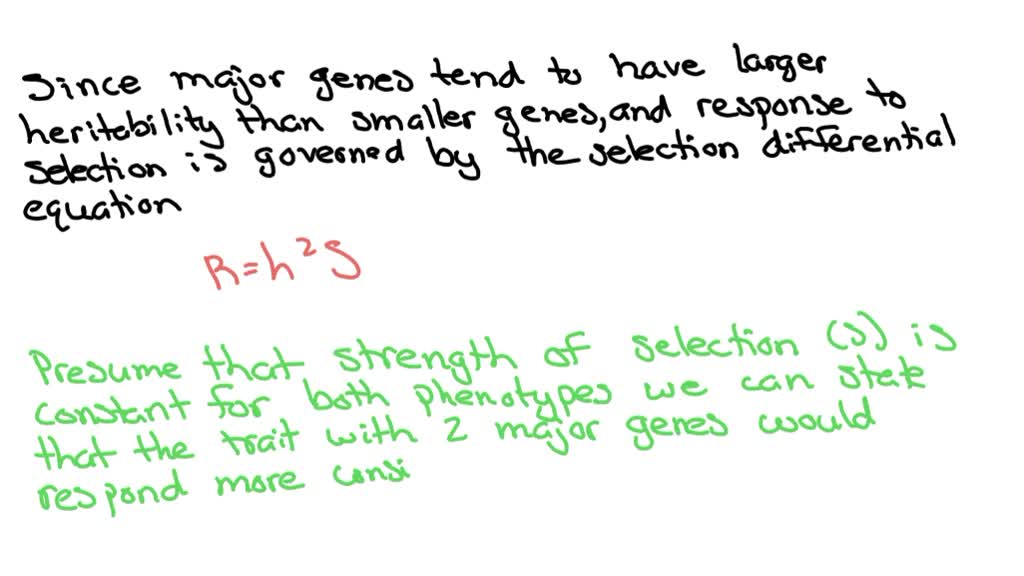 Since major genes tend to have larger
heritability than smaller genes, and response to
selection is governed by the selection differential
equation
R=h²S
Presume that strength of selection (S) is
constant for both phenotypes we can state
that the trait with 2 major genes would
respond more consi